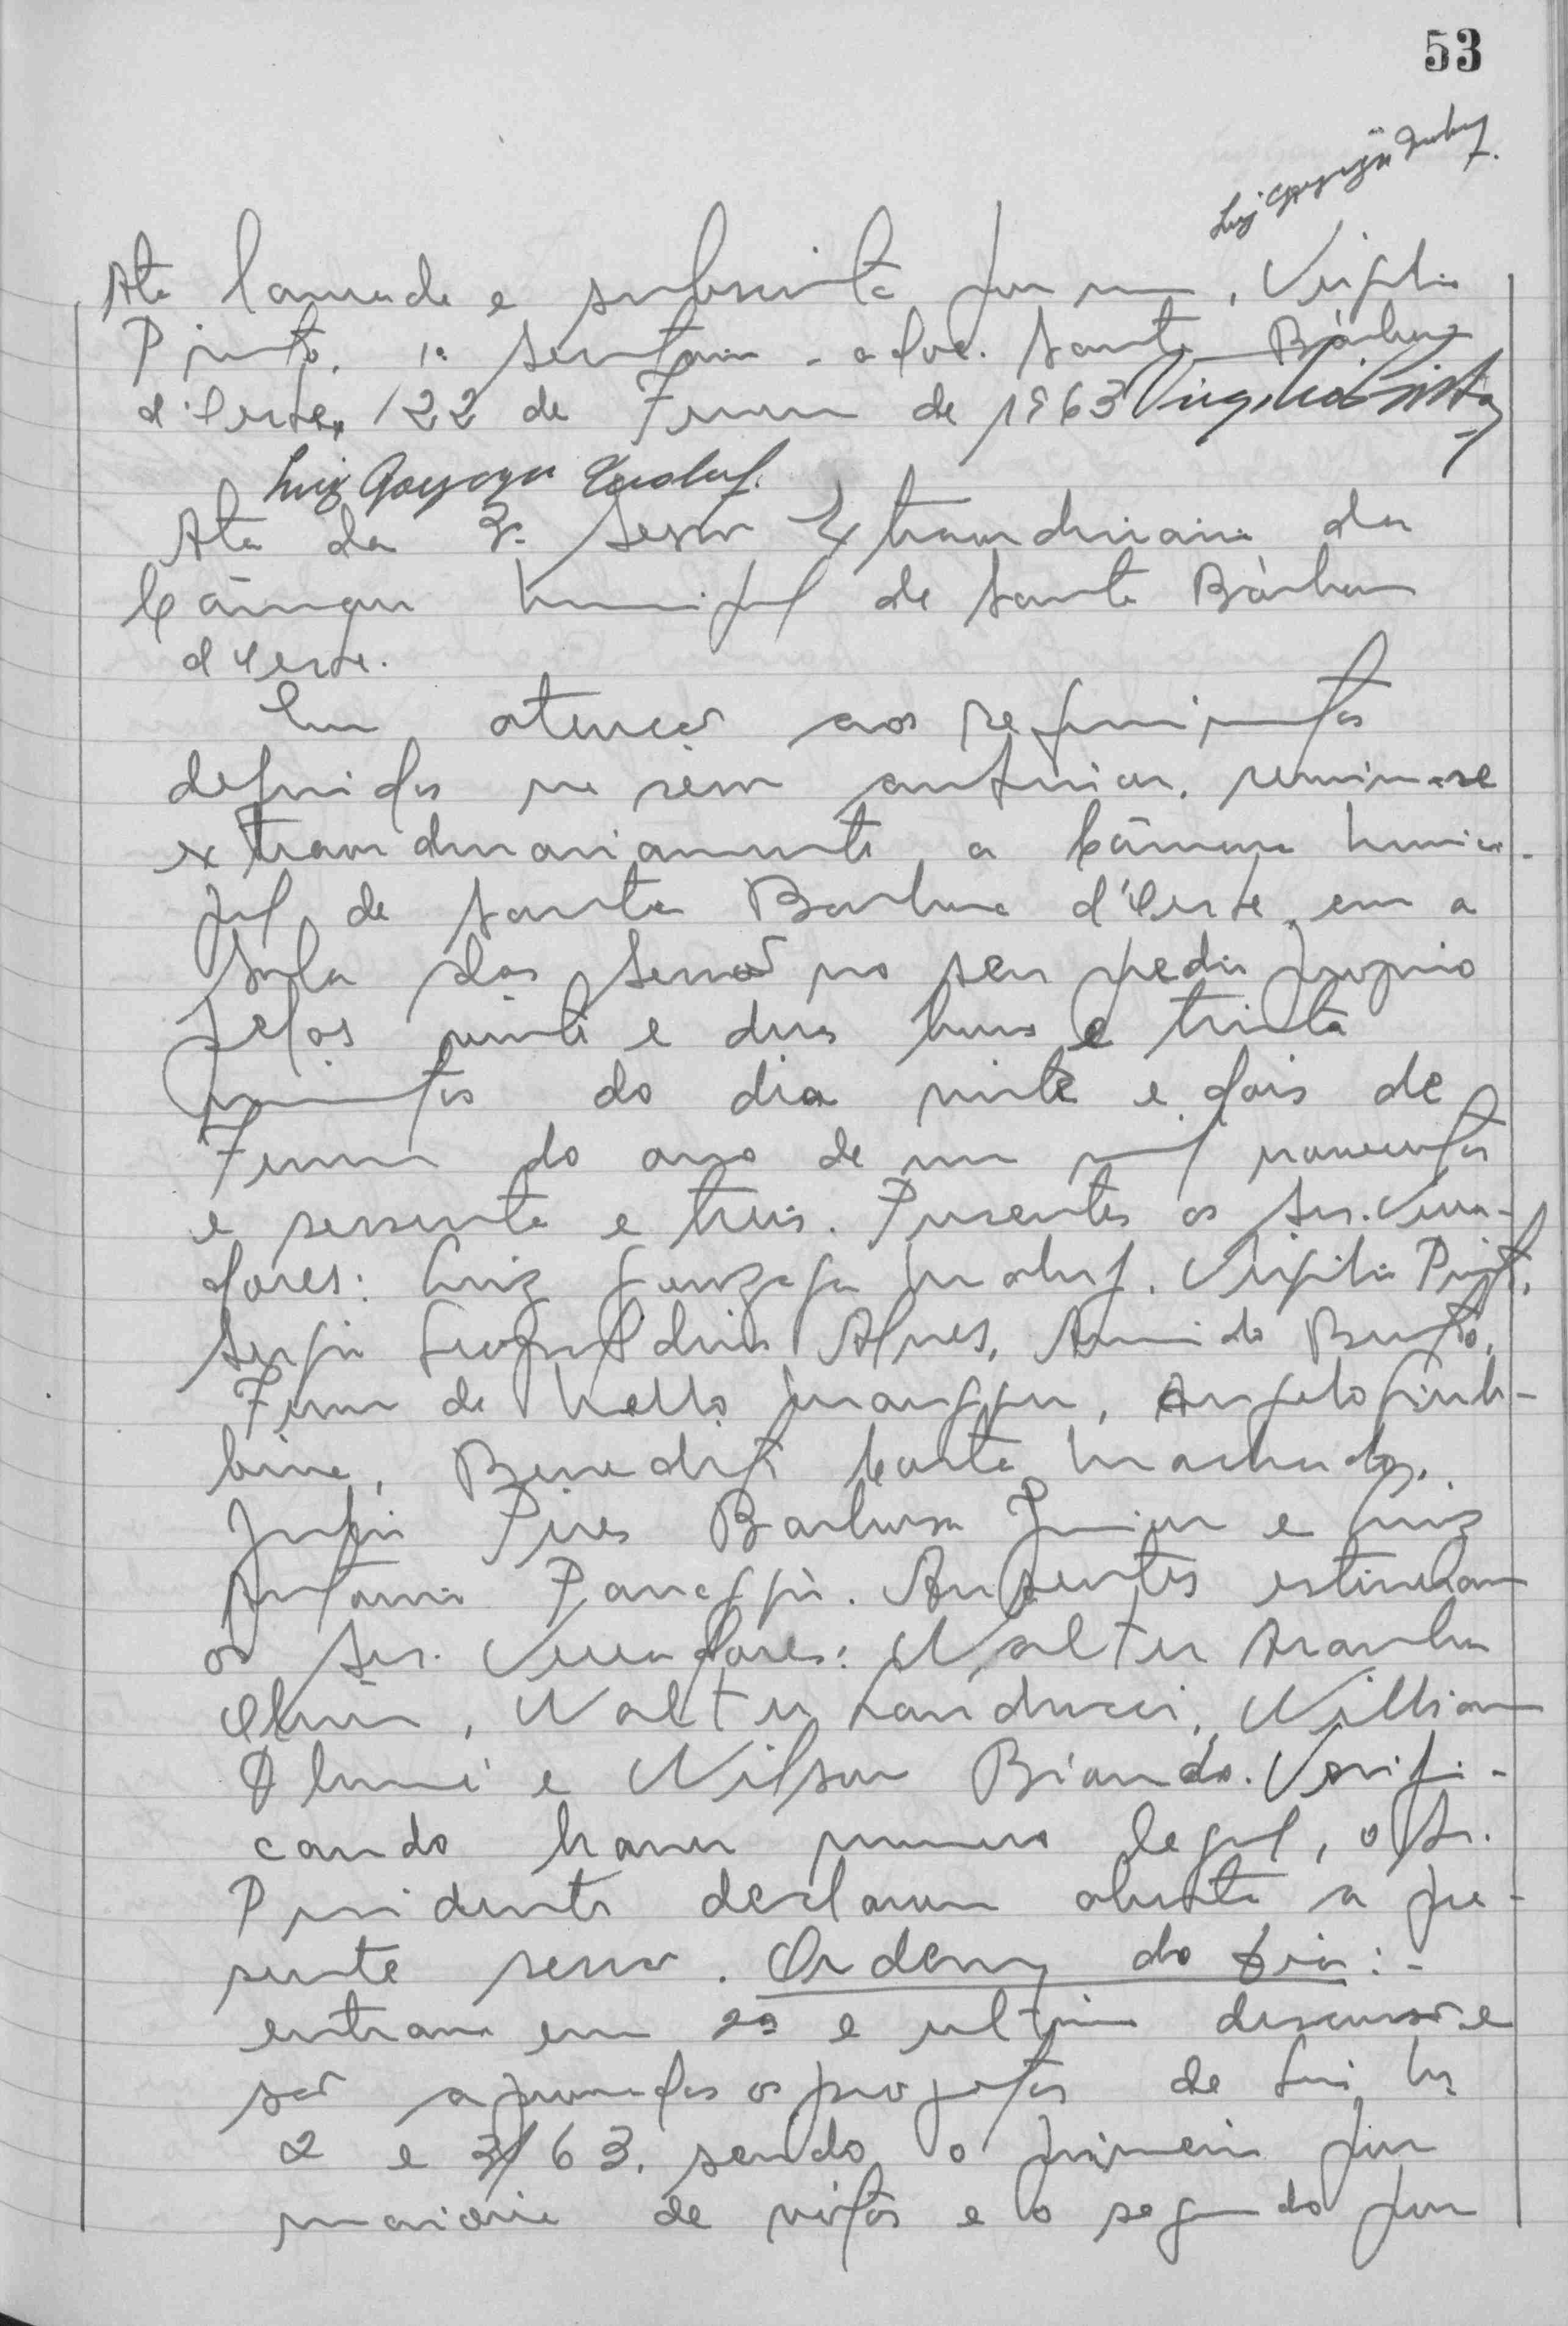 53
Ata lavrada e subscrita por mim, Virgilio
Pinto, 1º Secretario - adoc. Santa Bárbara
d'Oeste, 22 de Fevereiro de 1963 Virgilio Pinto
Luiz Gonzaga
Ata da 3ª Sessão Extraordinaria da
Câmara Municipal de Santa Bárbara
d'Oeste.
Em atenção aos requerimentos
deferidos na sessão anterior, reuniu-se
extraordinariamente a Câmara Munici-
pal de Santa Barbara d'Oeste, em a
Sala das Sessões no seu predio proprio
pelas vinte e duas horas e trinta
minutos do dia vinte e dois de
Fevereiro do ano de um mil novecentos
e sessenta e treis. Presentes os Srs. Verea-
dores: Luiz Gonzaga, Virgilio Pinto,
Sergio Leopoldino Alves, Bento,
de Mello, Angelo Giub-
bina, Benedito Costa Machado,
Pires Barbosa Junior e Luiz
Antonio Panaggio. Ausentes estiveram
os Srs. Vereadores: Walter Aranha
, Walter Landucci, Willian
e Wilson Biando. Verifi-
cando haver numero legal, o Sr.
Presidente declarou aberta a pre-
sente sessão. Ordem do Dia:-
entram em 2ª e ultima discussão e
são aprovados os projetos de Lei Nº
2 e 3/63, sendo o primeiro por
maioria de vótos e o segundo por